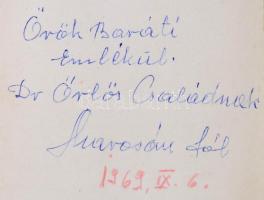 Örök Baráti
Emlékül.
Dr Őrlős Családnak
Marosán Pál
1969. IX. 6.